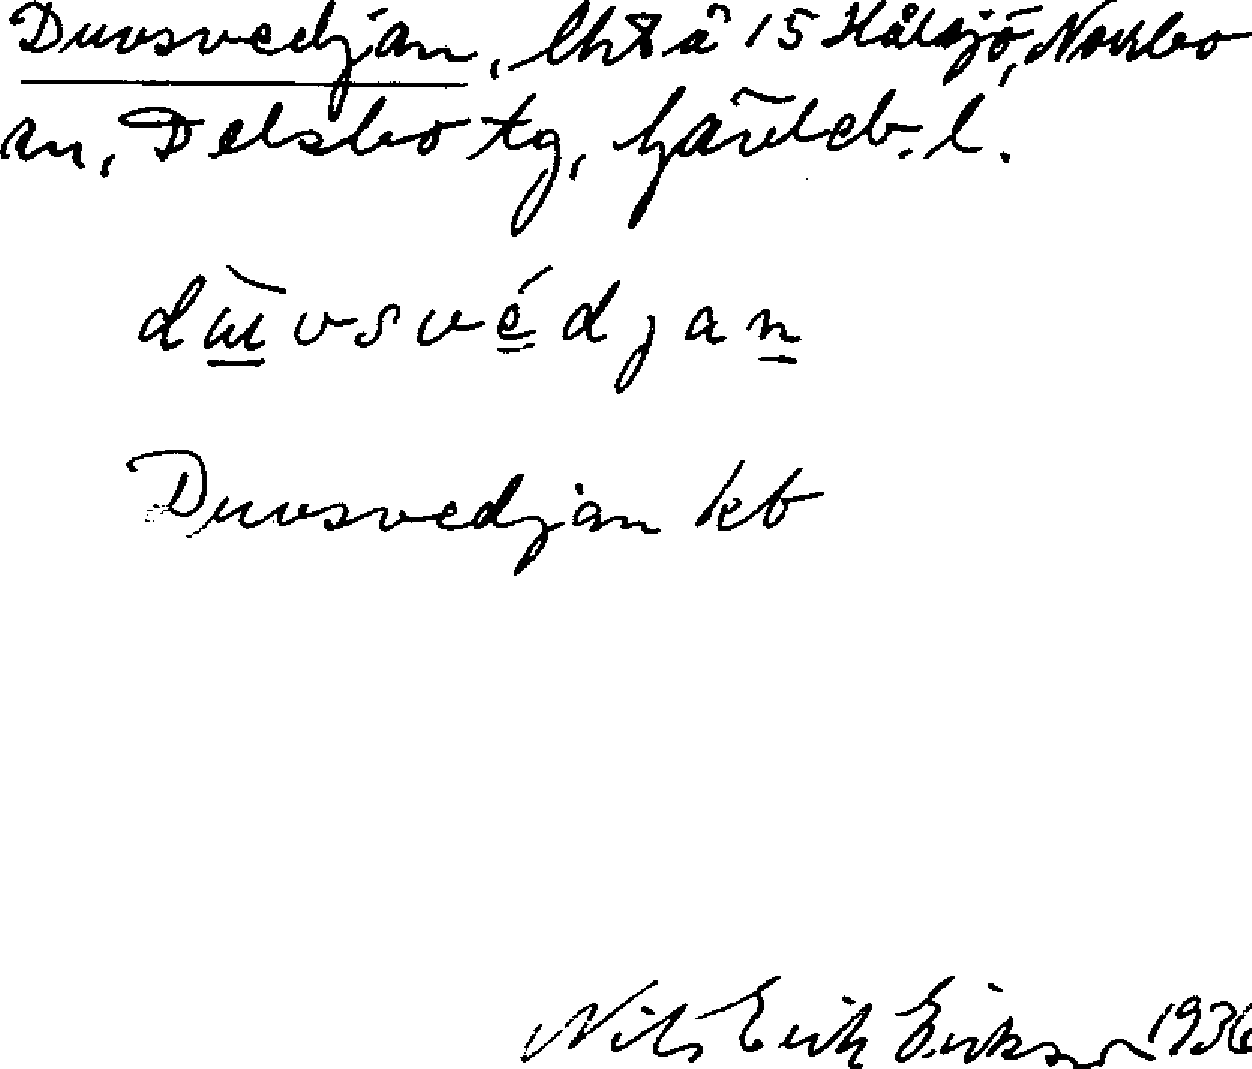 Duvsvedjan, lht å 15 Hålsjö, Norrbo
sn, Delsbo tg, Gävleb. l.
dɯvsvédjan
Duvsvedjan kb
Nils Erik Eriksson 1936